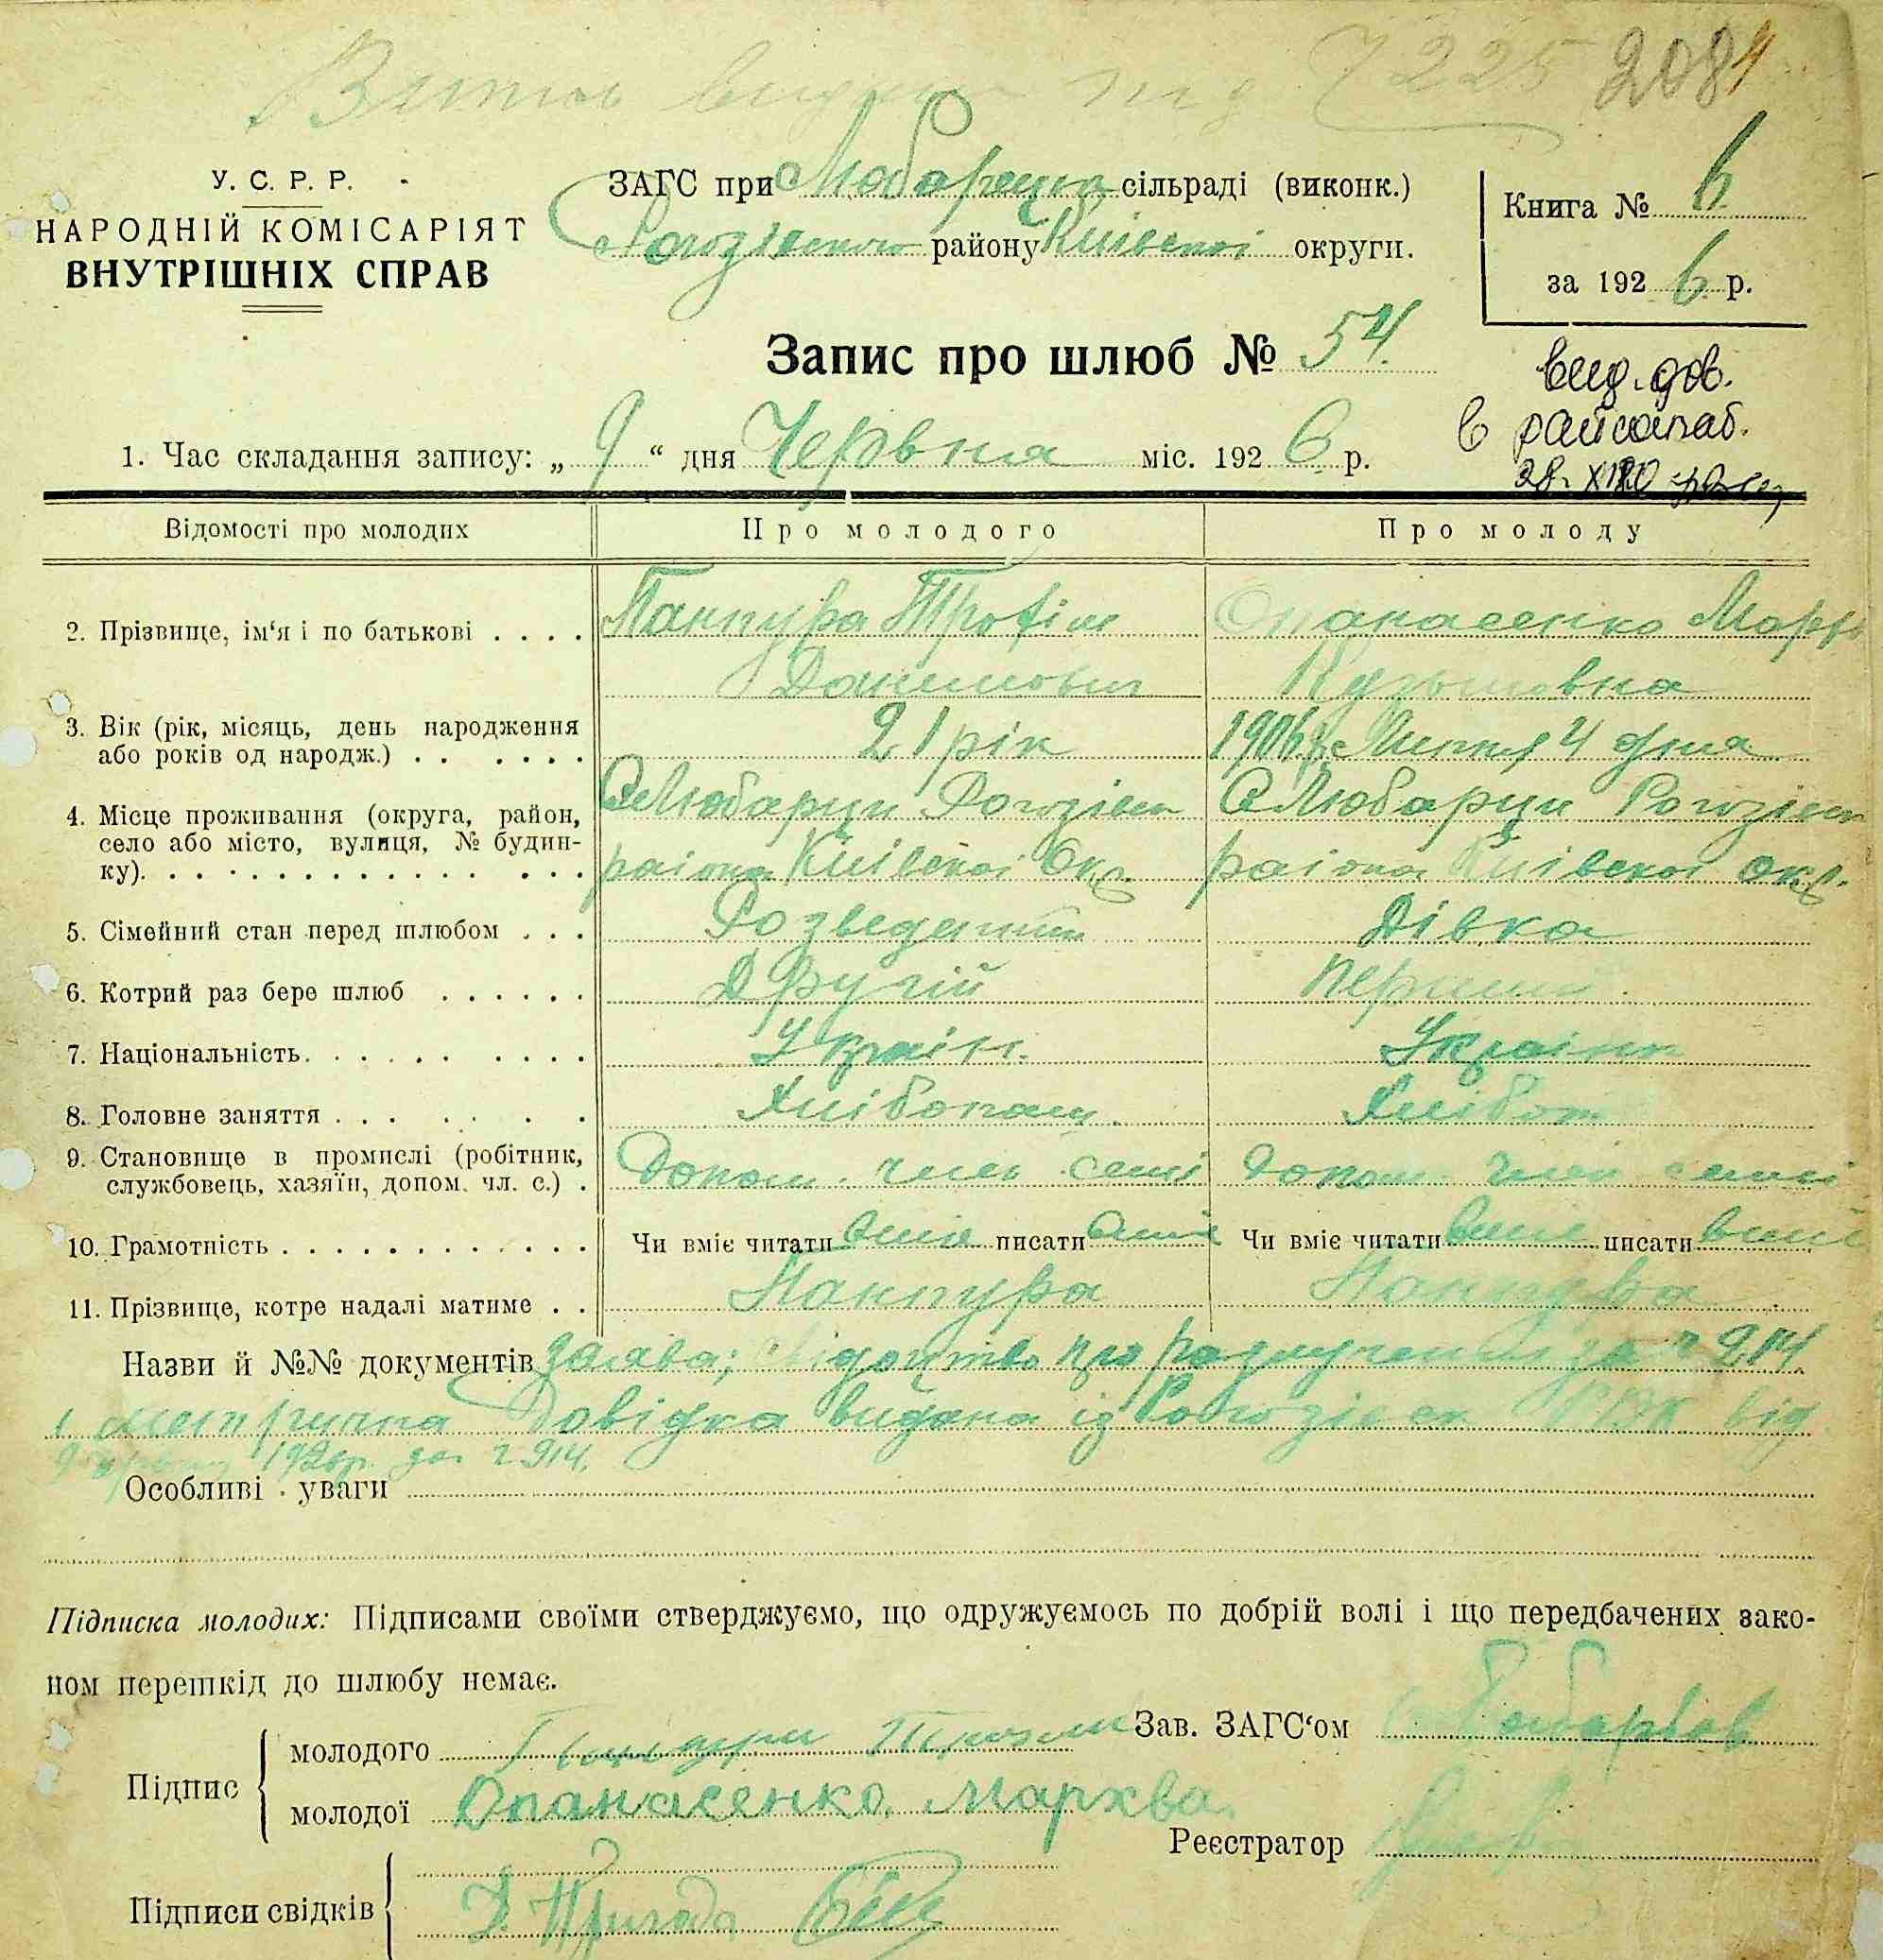 7225 2084
У. С. Р. Р.
НАРОДНІЙ КОМІСАРІЯТ
ВНУТРІШНІХ СПРАВ
ЗАГС при Любарецка сільраді (виконк.)
Рогозівского району Київскоі округи.
Книга № 6
за 1926 р.
Запис про шлюб № 54.
вид. дов.
в райсобаб.
1. Час складання запису: „ 9 “ дня Червня міс. 1926 р.
Відомості про молодих Про молодого Про молоду
2. Прізвище, ім‘я і по батькові . . . . Панпура Трофім Опанасенко Марфа
Данилович Кузьмовна
3. Вік (рік, місяць, день народження
або років од народж.) . . . . . . 21 рік 1906 р. Липня 4 дня
4. Місце проживання (округа, район, С Любарци Рогозівск С Любарци Рогозівск
село або місто, вулиця, № будин-
ку). . . . . . . . . . . . . . . . раіона Київскоі Окр. раіона Київскоі окр.
5. Сімейний стан перед шлюбом . . . Розведений Дівка
6. Котрий раз бере шлюб . . . . . . Другій перший
7. Національність. . . . . . . . . . Украін. Украінк
8. Головне заняття . . . . . . . Хлібопаш. Хлібоп
9. Становище в промислі (робітник,
службовець, хазяїн, допом. чл. с.) . Допом. член семі допом. член семі
10. Грамотність . . . . . . . . . . . . . Чи вміє читати вміє писати вміє Чи вміє читати вміє писати вміє
11. Прізвище, котре надалі матиме . . Панпура Панпура
Назви й №№ документів Заява; свідоцтво про разлучення за № 214
і метрична Довідка видана із Рогозівск РВК від
9 1926 р. за № 914.
Особливі уваги
Підписка молодих: Підписами своїми стверджуємо, що одружуємось по добрій волі і що передбачених зако-
ном перешкід до шлюбу немає.
Підпис
молодого
Зав. ЗАГС‘ом
молодої Опанасенко Мархва.
Реєстратор
Підписи свідків Д. Пригода